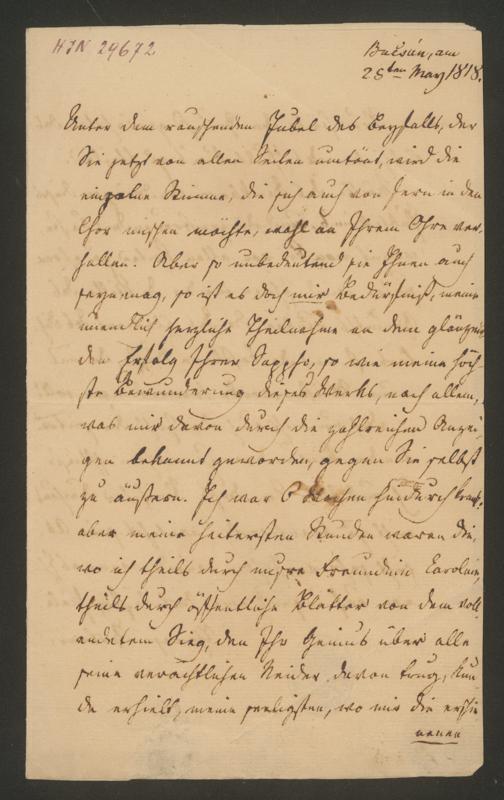 HIN 29672
Bucsán, am
28ten May 1818.
Unter dem rauschenden Jubel des Beyfalls, der
Sie jetzt von allen Seiten umtönt, wird die
einzelne Stimme, die sich auch von fern in den
Chor mischen möchte, wohl an Ihrem Ohre ver-
hallen. Aber so unbedeutend sie Ihnen auch
seyn mag, so ist es doch mir Bedürfniß, meine
unendlich herzliche Theilnahme an dem glänzen-
den Erfolg Ihrer Sappho, so wie meine höch-
ste Bewunderung dieses Werks, nach allem,
was mir davon durch die zahlreichen Anzei-
gen bekannt geworden, gegen Sie selbst
zu äußern. Ich war 6 Wochen hindurch krank,
aber meine heitersten Stunden waren die,
wo ich theils durch unsre Freundinn Caroline,
theils durch öffentliche Blätter von dem voll-
endetem Sieg, den Ihr Genius über alle
seine verächtlichen Neider davon trug, Kun-
de erhielt, meine seeligsten, wo mir die erschie
nenen